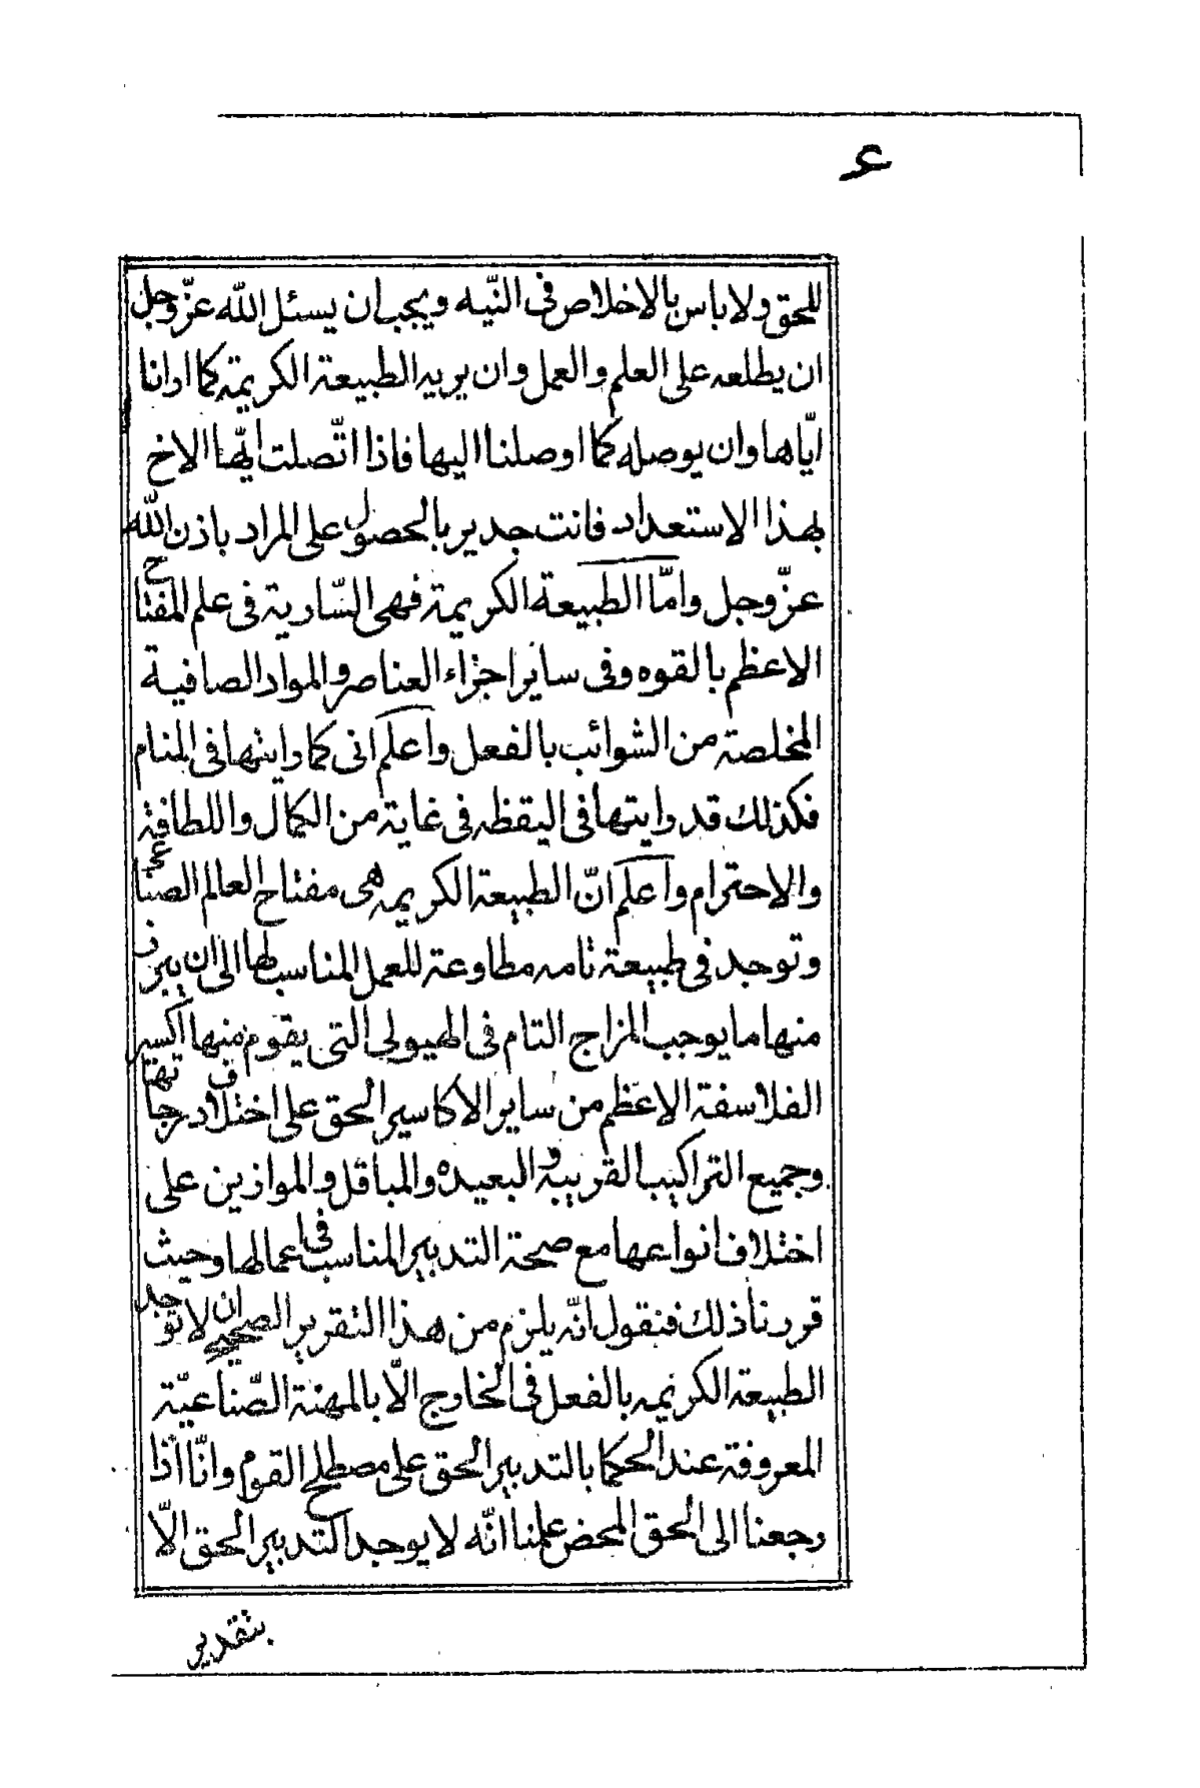 ع
للحق ولا باس بالاخلاص فى النّيه ويجب ان يسئل الله عزّ وجل
ان يطلعه على العلم والعمل وان يريه الطبيعة الكريمة كما ارانا
ايّاها وان يوصله كما اوصلنا اليها فاذا اتّصلت ايّها الاخ
بهذا الاستعداد فانت جدير بالحصول على المراد باذن الله
عزّ وجل وامّا الطبيعة الكريمة فهى السّارية فى علم المفتاح
الاعظم بالقوه وفى ساير اجزاء العناصر والمواد الصافية
المخلصة من الشوائب بالفعل واعلم انى كما رايتها فى المنام
فكذلك قد رايتها فى اليقظه فى غاية من الكمال واللطافة
والاحترام واعلم انّ الطبيعة الكريمه هى مفتاح العالم الصناعى
وتوجد فى طبيعة تامه مطاوعة للعمل المناسب لها الى ان يبرز
منها ما يوجب المزاج التام فى الهيولى التى يقوم منها اكسير
الفلاسفة الاعظم من ساير الاكاسير الحق على اختلاف درجاتها
وجميع التراكيب القريبة و البعيده والمباقل والموازين على
اختلاف انواعها مع صحة التدبير المناسب فى اعمالها وحيث
قررنا ذلك فنقول انّه يلزم من هذا التقرير الصحيح ان لا توجد
الطبيعة الكريمه بالفعل فى الخارج الّا بالمهنة الصّناعيّة
المعروفة عند الحكما بالتدبير الحق على مصطلح القوم وانّا اذا
رجعنا الى الحق المحض علمنا انّه لا يوجد التدبير الحق الّا
بتقدير